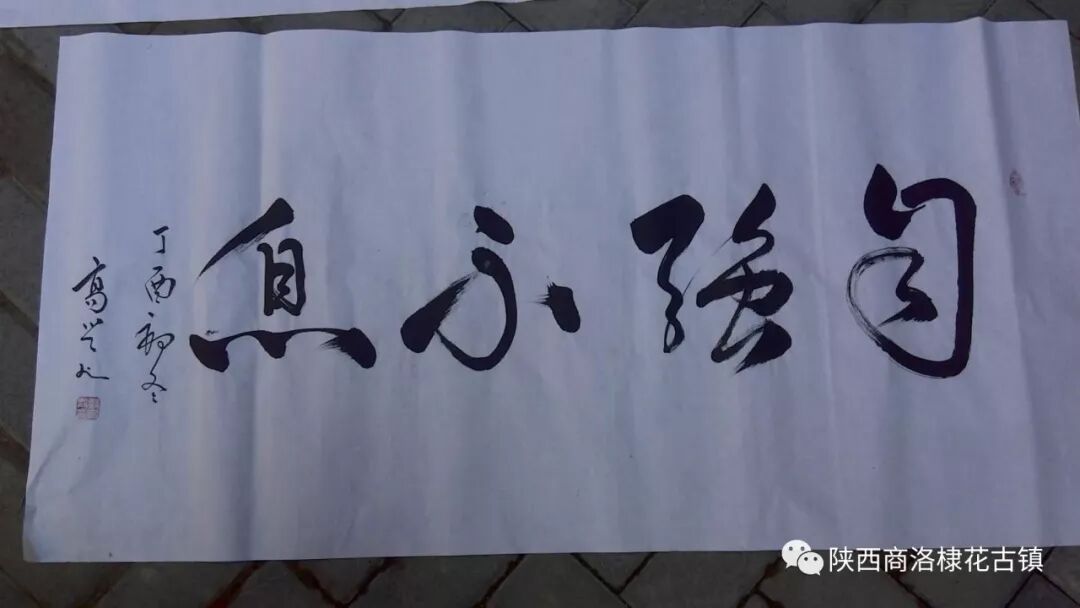 自强不息
丁酉初冬
高
陕西商洛棣花古镇